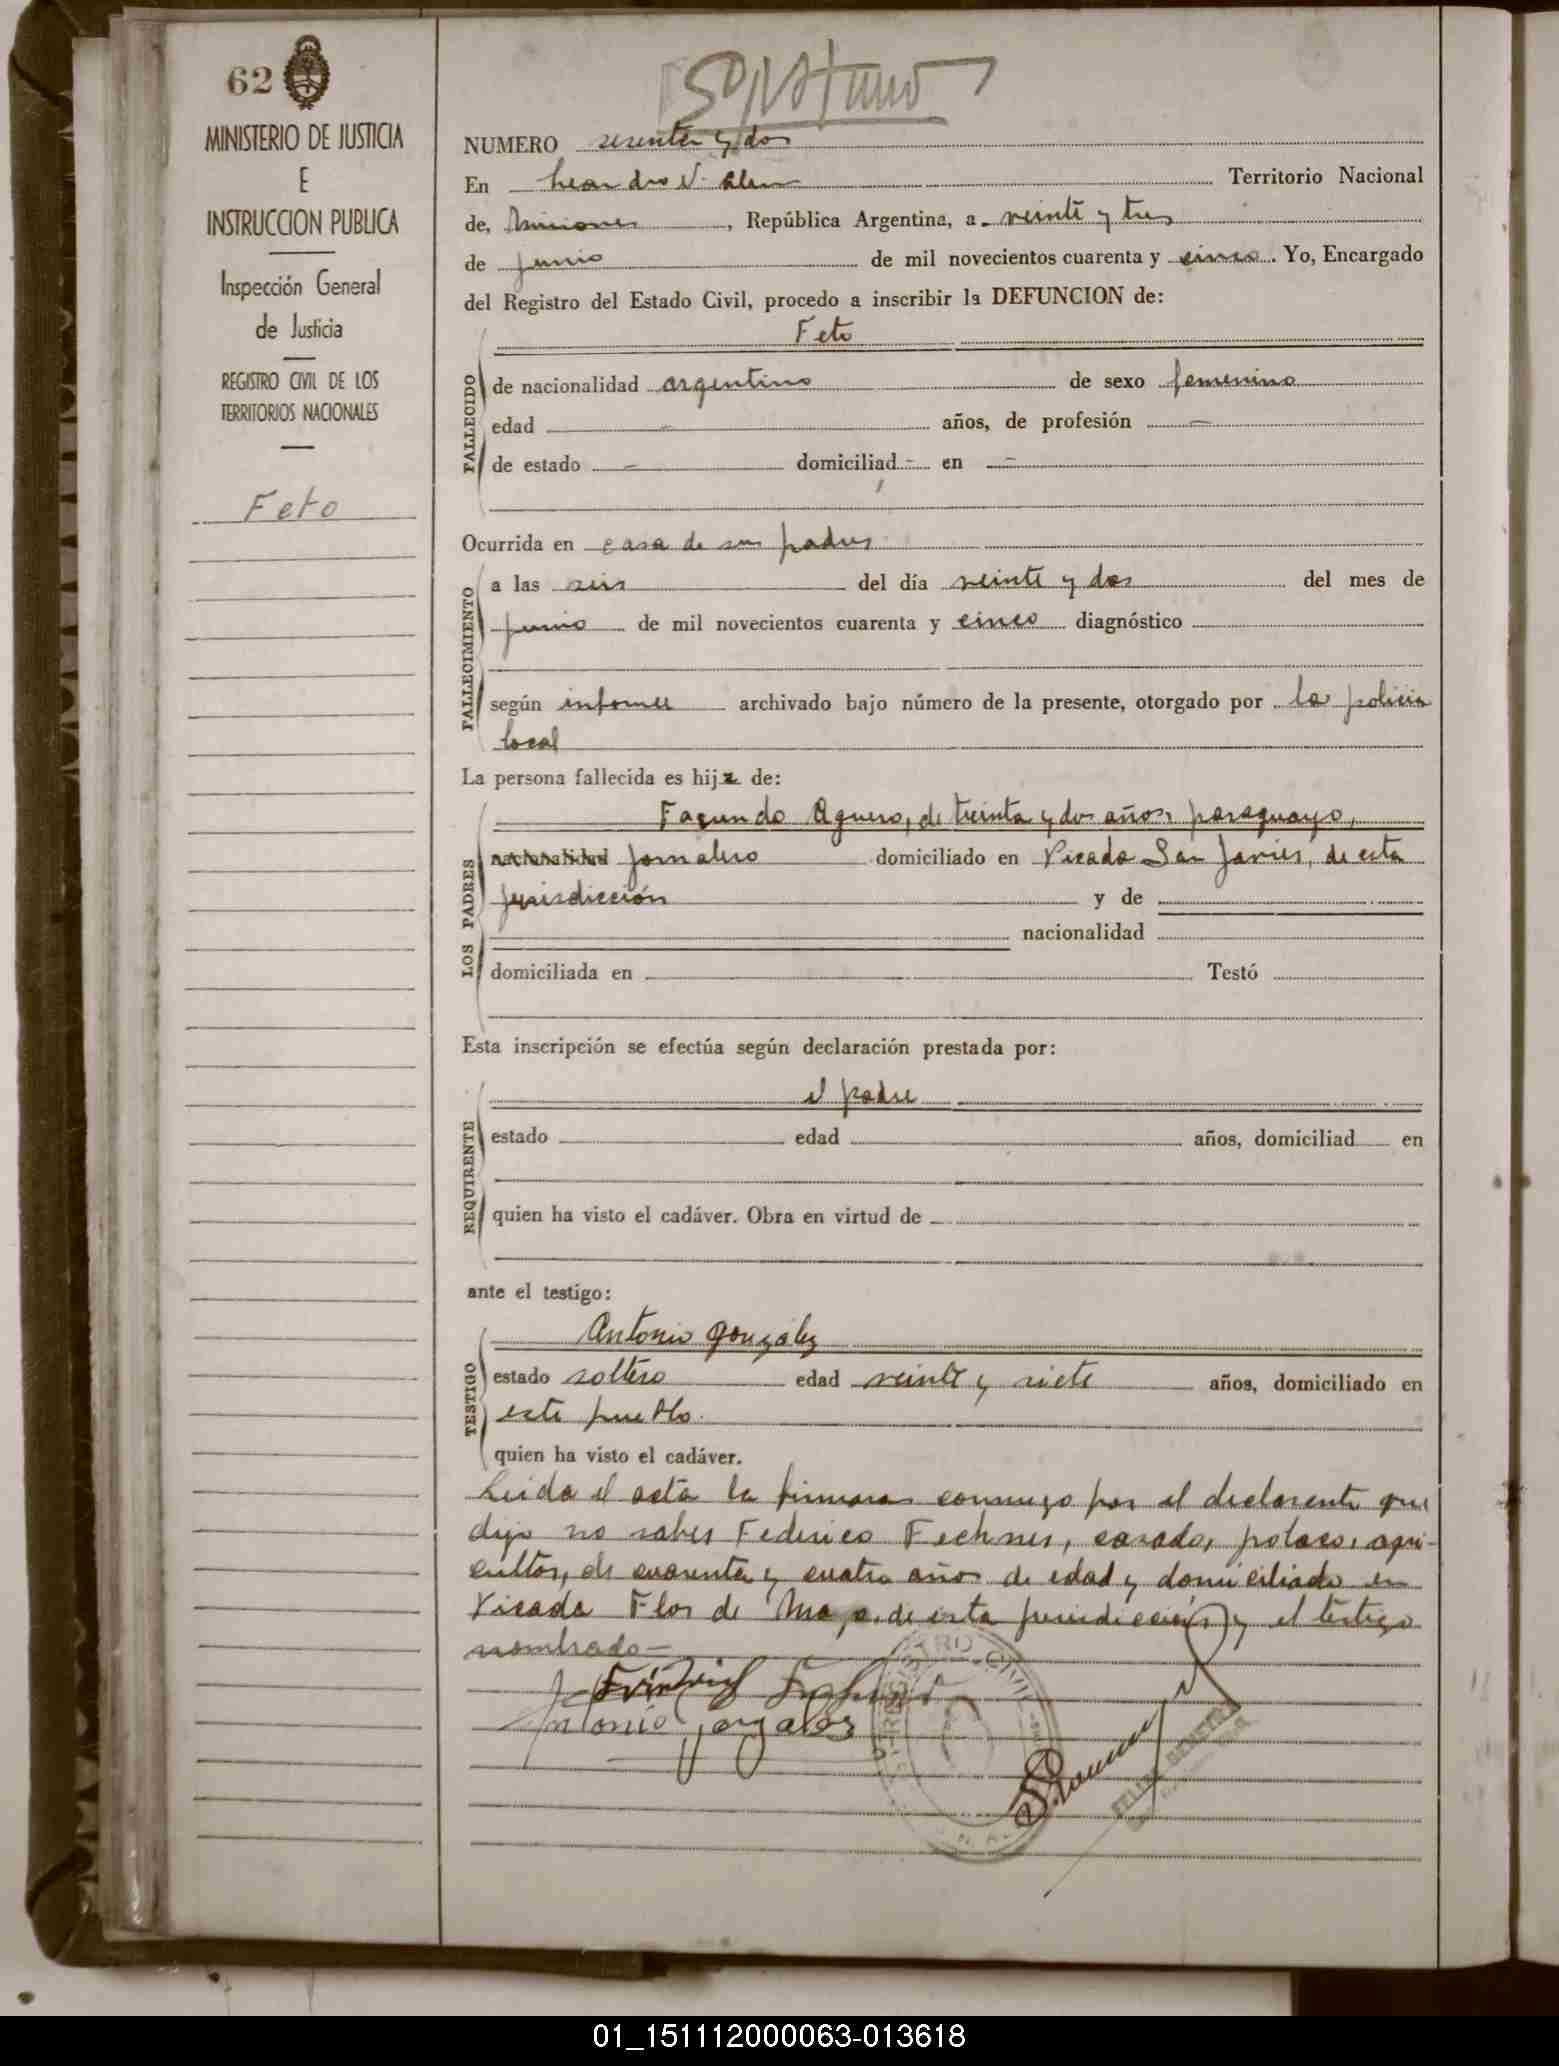 62
MINISTERIO DE JUSTICIA
E
INSTRUCCION PUBLICA
Inspección General
de Justicia
REGISTRO CIVIL DE LOS
TERRITORIOS NACIONALES
Feto
NUMERO sesenta y dos
En Leandro N. Alem Territorio Nacional
de, Misiones, República Argentina, a veinte y tres
de junio de mil novecientos cuarenta y cinco. Yo, Encargado
del Registro del Estado Civil, procedo a inscribir la DEFUNCION de:
Feto
FALLECIDO
de nacionalidad argentino de sexo femenino
edad - años, de profesión -
de estado - domiciliad - en -
Ocurrida en casa de sus padres
FALLECIMIENTO
a las seis del día veinte y dos del mes de
junio de mil novecientos cuarenta y cinco diagnóstico
según informe archivado bajo número de la presente, otorgado por la policia
local
La persona fallecida es hija de:
LOS PADRES
Facundo Aguero, de treinta y dos años, paraguayo,
nacionalidad jornalero domiciliado en Picada San Javier, de esta
jurisdicción y de
nacionalidad
domiciliada en Testó
Esta inscripción se efectúa según declaración prestada por:
REQUIRENTE
el padre
estado edad años, domiciliad en
quien ha visto el cadáver. Obra en virtud de
ante el testigo:
TESTIGO
Antonio González
estado soltero edad veinte y siete años, domiciliado en
este pueblo.
quien ha visto el cadáver.
Leida el acta la firmaron conmigo por el declarante que
dijo no saber Federico Fechner, casado, polaco, agri-
cultor, de cuarenta y cuatro años de edad y domiciliado en
Picada Flor de Mayo, de esta jurisdicción y el testigo
nombrado—
Antonio Gonzalez
REGISTRO CIVIL
01_151112000063-013618